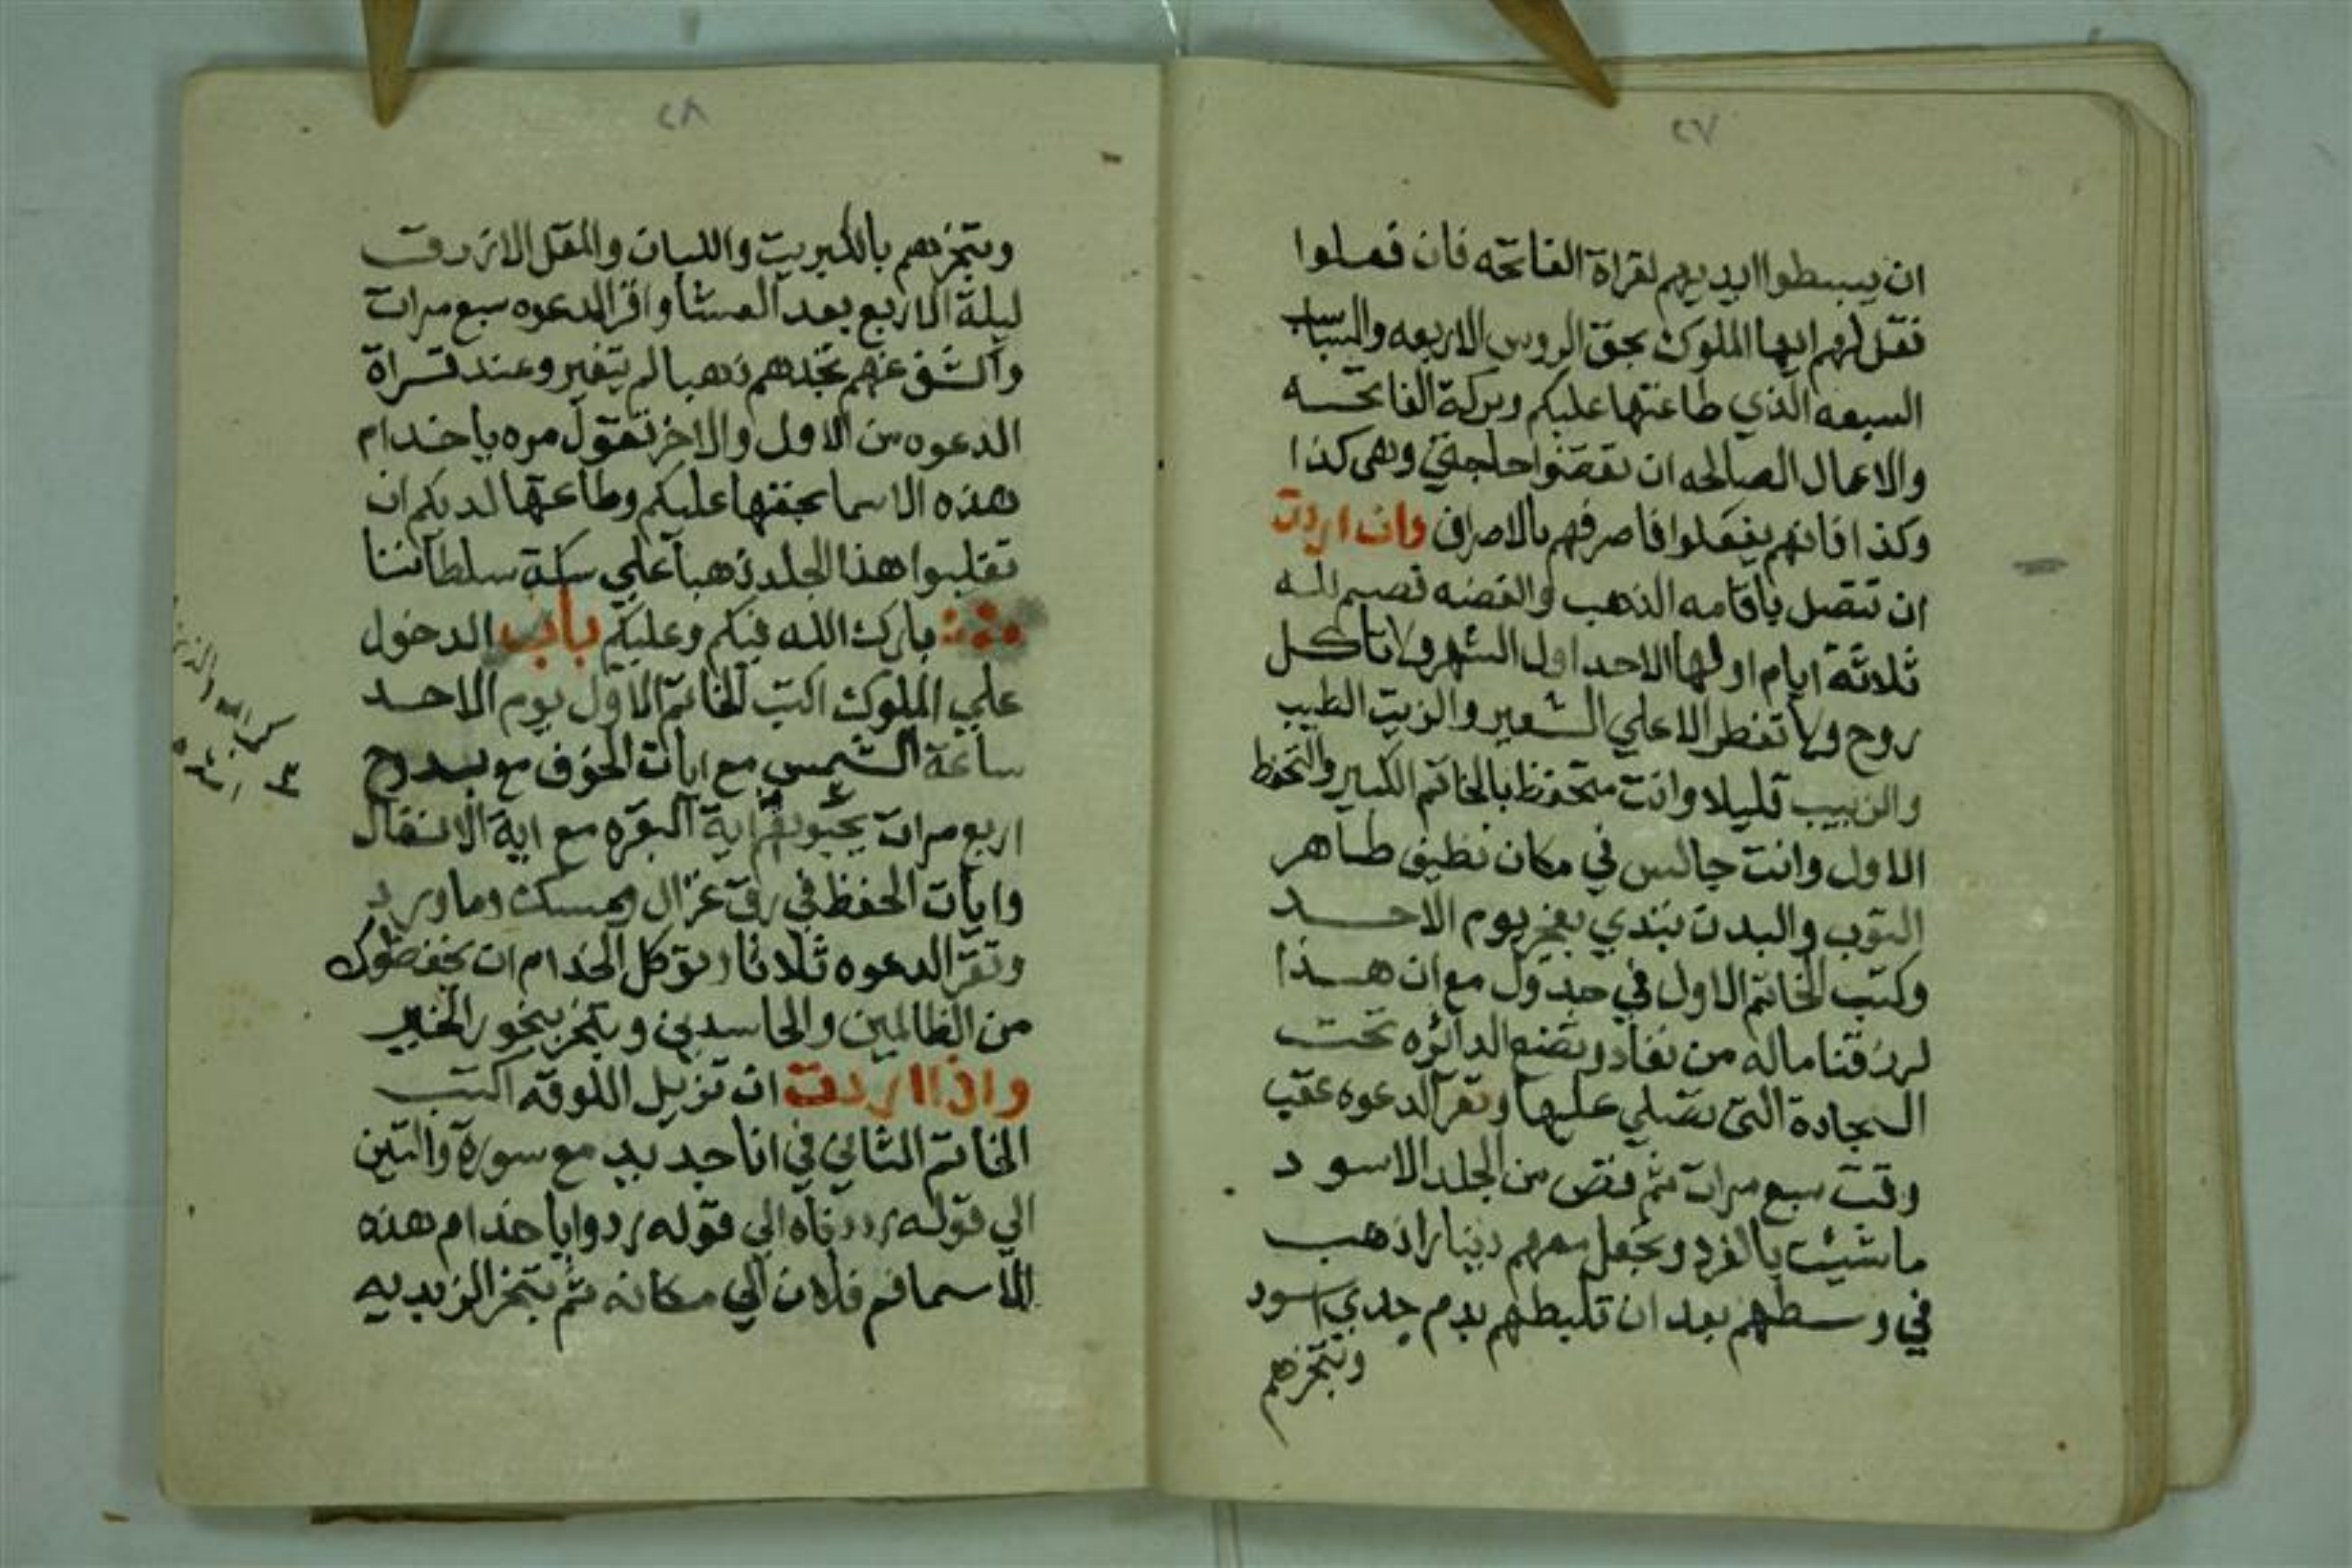 ٢٧
ان يبسطوا ايديهم لقراة الفاتحه فان فعلوا
فقل لهم ايها الملوك بحق الروس الاربعه والسباسب
السبعه الذي طاعتها عليكم وبركة الفاتحه
والاعمال الصالحه ان تقضوا حاجتي وهى كذا
وكذا فانهم يفعلوا فاصرفهم بالاصراف وان اردت
ان تتصل باقامه الذهب والفضه تصيم لله
ثلاثة ايام اولها الاحد اول الشهر ولا تاكل
روح ولا تفطر الا علي الشعير والزيت الطيب
والزبيب قليلا وانت متحفظ بالخاتم الكبير والتحفظ
الاول وانت جالس في مكان نظيف طاهر
التوب والبدن تبتدي بفجر يوم الاحد
وكتب الخاتم الاول في جدول مع ان هذا
لرزقنا ماله من نفاد وتضع الدائره تحت
السجادة التى تصلي عليها وتقرا الدعوه عقب
وقت سبع مرات ثم قص من الجلد الاسود
ما شئت بالفرد وتجعل معهم دينارا ذهب
في وسطهم بعد ان تلبطهم بدم جدي اسود
وتبخرهم
٢٨
وتبخرهم بالكبريت واللبان والمقل الازرق
ليلة الاربع بعد العشا واقرا الدعوه سبع مرات
واكشف عنهم تجدهم ذهبا لم يتغير وعند قراة
الدعوه من الاول والاخر تقول مره يا خدام
هذه الاسما بحقها عليكم وطاعتها لديكم ان
تقلبوا هذا الجلد ذهبا علي سكة سلطاننا
بارك الله فيكم وعليكم باب الدخول
علي الملوك اكتب الخاتم الاول يوم الاحد
ساعة الشمس مع ايات الخوف مع بدوح
اربع مرات يحبونهم اية البقره مع اية الانفال
وايات الحفظ في رق غزال ومسك وماورد
وتقرا الدعوه ثلاثا وتوكل الخدام ان يحفظوك
من الظالمين والحاسدين وتبخر ببخور الخير
واذا اردت ان تزيل اللوقه اكتب
الخاتم الثاني في انا جديد مع سورة والتين
الي قوله رددناه الي قوله ردوا يا خدام هذه
الاسما فم فلان الي مكانه ثم تبخر الزبديه